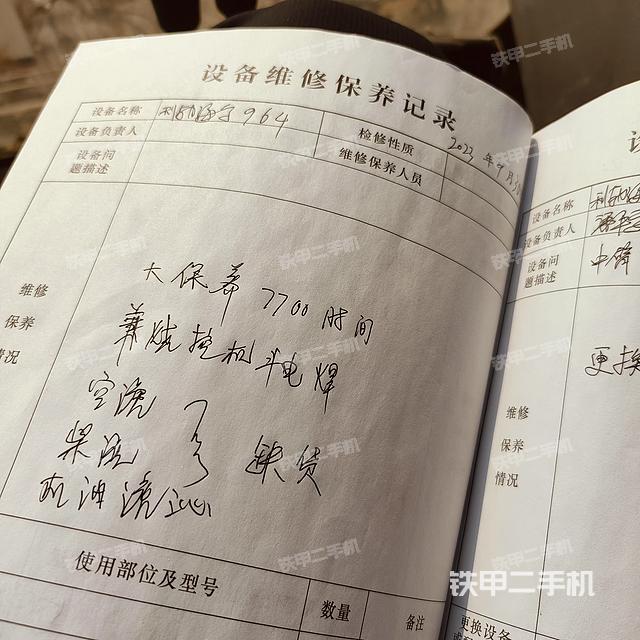 设备维修保养记录
设备名称 利勃海尔964 检修性质 2023年9月
设备负责人 维修保养人员
设备问题描述
维修保养情况
大保养 7700时间
挖机斗电焊
空滤
柴滤 缺货
机油滤芯
使用部位及型号 数量 备注
设备名称
设备负责人
设备问题描述
中
更换
维修
保养
情况
更换设备
铁甲二手机